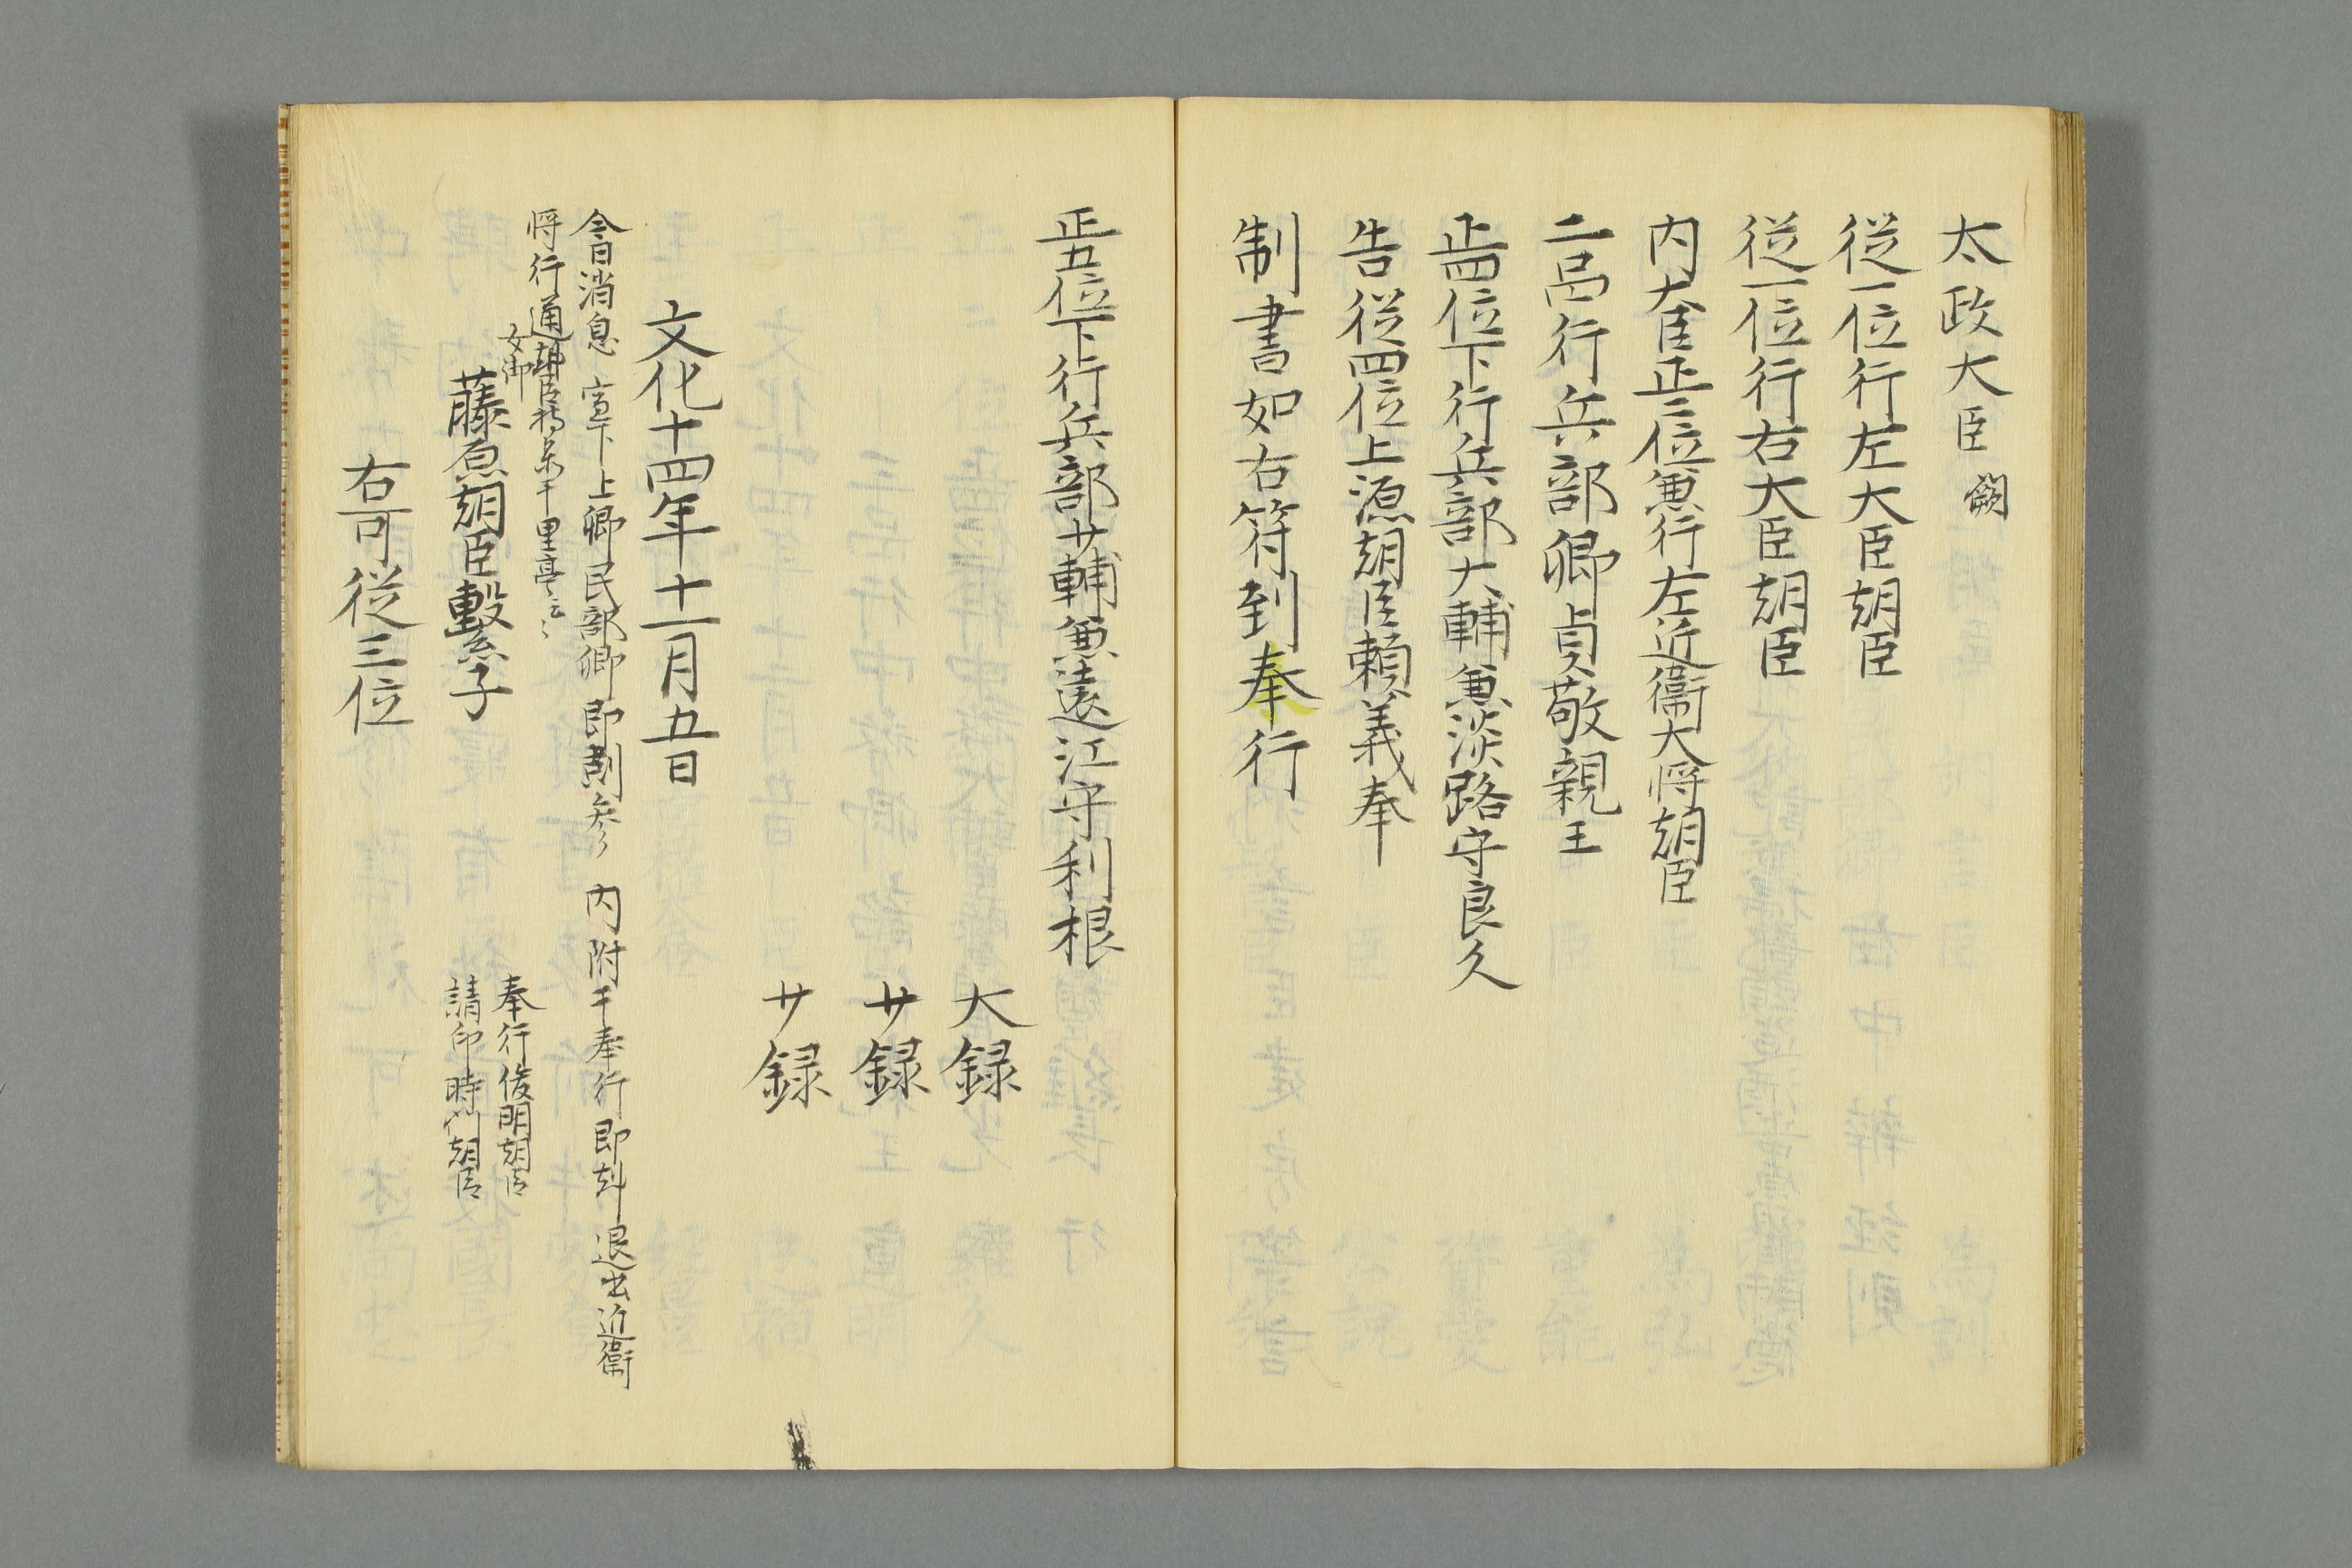 太政大臣 闕
従一位行左大臣朝臣
従一位行右大臣朝臣
内大臣正二位兼行左近衛大将朝臣
二品行兵部卿貞敬親王
正四位下行兵部大輔兼淡路守良久
告従四位上源朝臣頼義奉
制書如右符到奉行
正五位下行兵部少輔兼遠江守利根
大録
少録
少録
文化十四年十一月五日
今日消息 宣下上卿民部卿即刻参 内附于奉行即刻退出近衛
将行通朝臣 于里亭云々
女御
藤原朝臣繋子
奉行俊明朝臣
請印時 朝臣
右可従三位